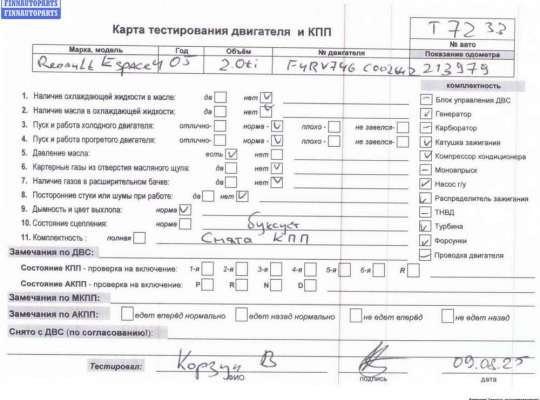 FINNAUTOPARTS
FINNAUTOPARTS
Карта тестирования двигателя и КПП
Т 7233
№ авто
Марка, модель Год Объём № двигателя Показание одометра
Renault Espace 4 05 2.0ti F4RV746 213979
комплектность
1. Наличие охлаждающей жидкости в масле: да нет
2. Наличие масла в охлаждающей жидкости: да нет
3. Пуск и работа холодного двигателя: отлично- норма - плохо - не завелся-
4. Пуск и работа прогретого двигателя: отлично- норма - плохо - не завелся-
5. Давление масла: есть нет
6. Картерные газы из отверстия масляного щупа: да нет
7. Наличие газов в расширительном бачке: да нет
8. Посторонние стуки или шумы при работе: да нет
9. Дымность и цвет выхлопа: норма
10. Состояние сцепления: норма буксует
11. Комплектность : полная Снята КПП
Блок управления ДВС
Генератор
Карбюратор
Катушка зажигания
Компрессор кондиционера
Моновпрыск
Насос г/у
Распределитель зажигания
ТНВД
Турбина
Форсунки
Проводка двигателя
Замечания по ДВС:
Состояние КПП - проверка на включение: 1-я 2-я 3-я 4-я 5-я 6-я R
Состояние АКПП - проверка на включение: P R N D
Замечания по МКПП:
Замечания по АКПП: едет вперёд нормально едет назад нормально не едет вперёд не едет назад
Снято с ДВС (по согласованию!):
Тестировал: Корзун В 09.08.25
ФИО подпись дата